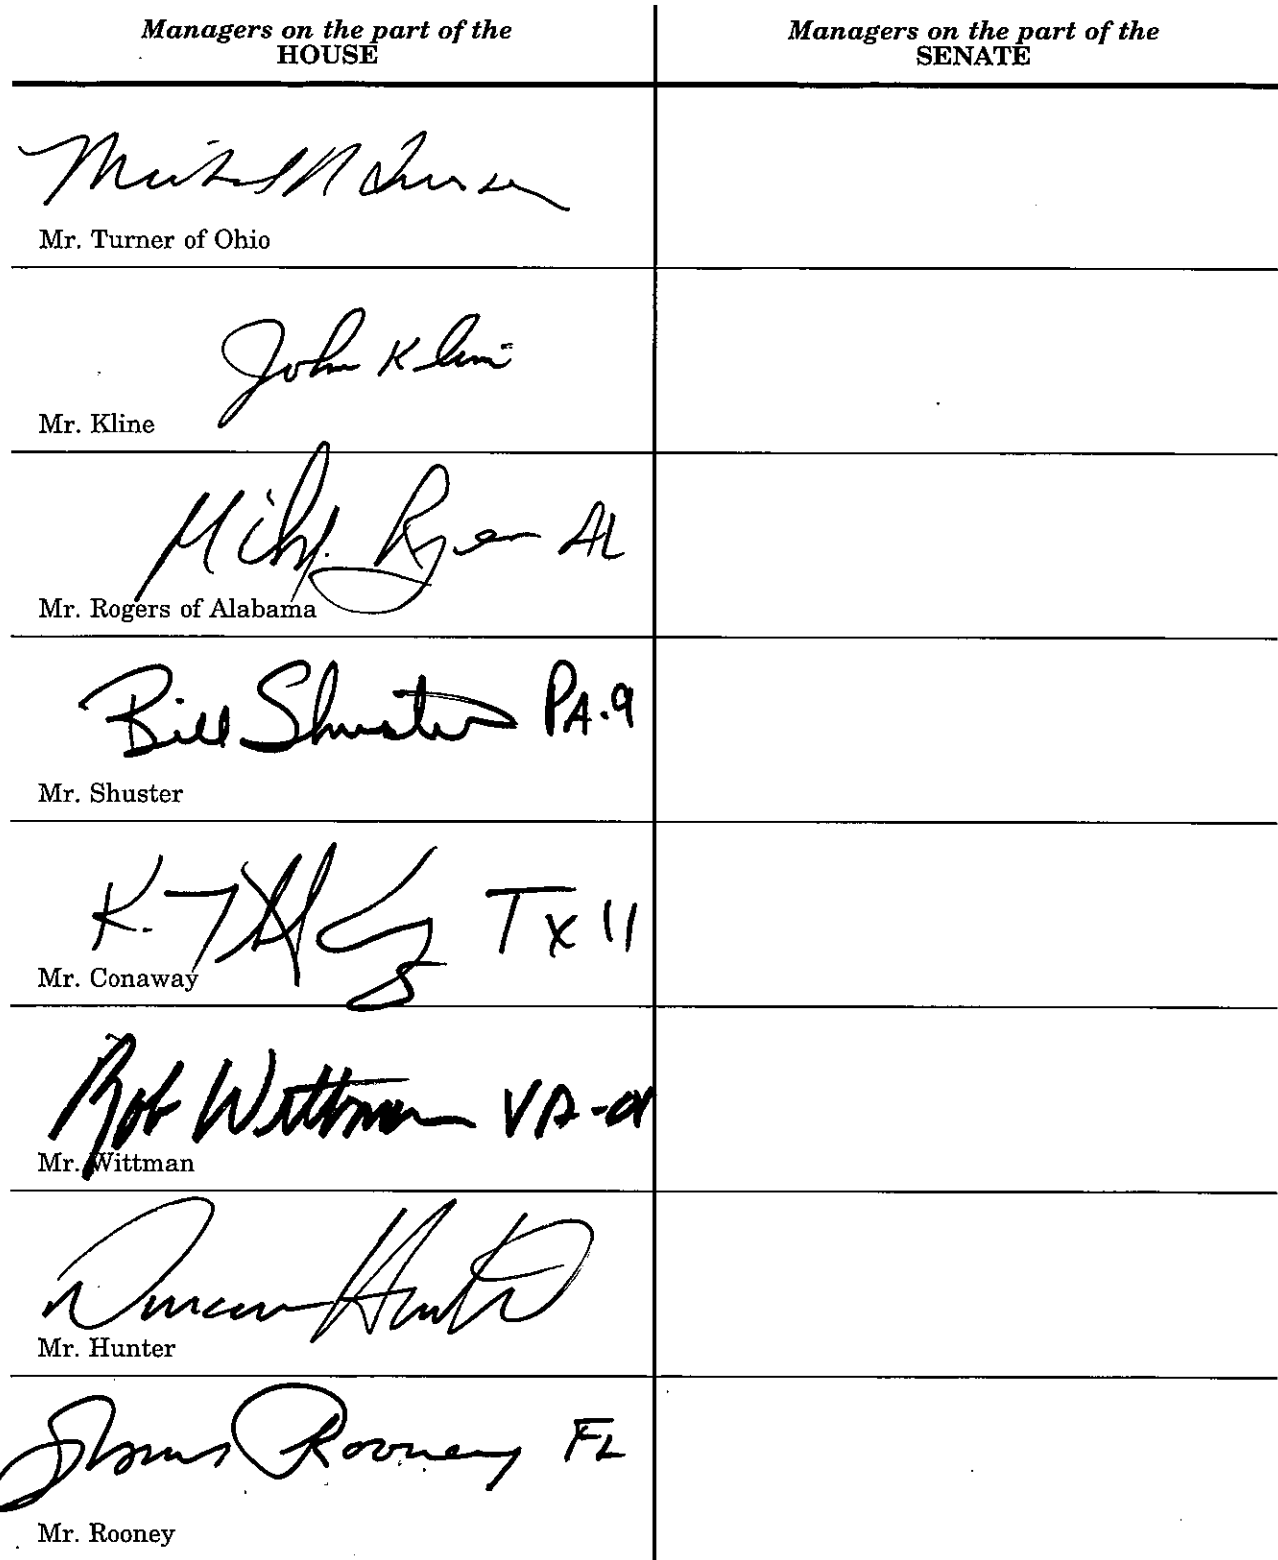 Managers on the part of the
HOUSE
Managers on the part of the
SENATE
Michael R Turner
Mr. Turner of Ohio
John Kline
Mr. Kline
Mike Rogers AL
Mr. Rogers of Alabama
Bill Shuster PA.9
Mr. Shuster
K. TX 11
Mr. Conaway
Rob Wittman VA-01
Mr. Wittman
Duncan Hunter
Mr. Hunter
Thomas Rooney FL
Mr. Rooney